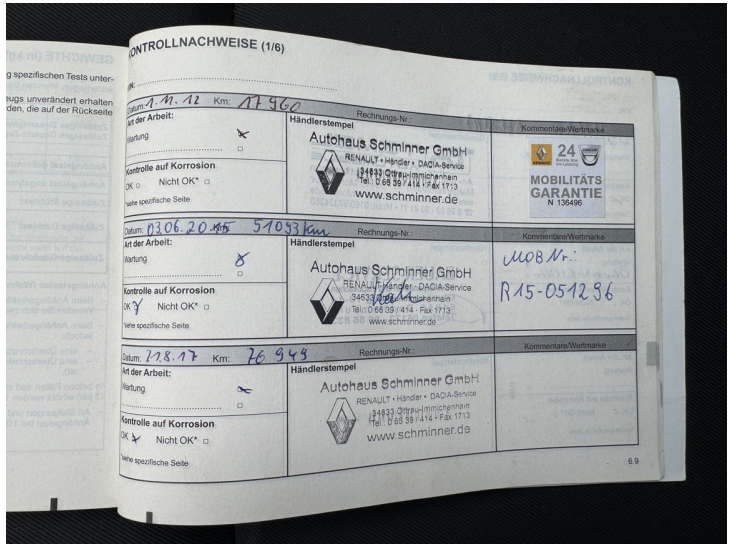 g spezifischen Tests unter-
eugs unverändert erhalten
rden, die auf der Rückseite
KONTROLLNACHWEISE (1/6)
IN:
Datum: 1.11.12 Km: 17960 Rechnungs-Nr.: Kommentare/Wertmarke
Art der Arbeit:
Wartung
Kontrolle auf Korrosion
OK Nicht OK*
*siehe spezifische Seite
Händlerstempel
Autohaus Schminner GmbH
RENAULT • Händler • DACIA-Service
34633 Ottrau-Immichenhain
Tel.: 0 66 39 / 414 • Fax 1713
www.schminner.de
RENAULT 24 DACIA
MOBILITÄTS
GARANTIE
N 136496
Datum: 03.06.2015 51093 km Rechnungs-Nr.: Kommentare/Wertmarke
Art der Arbeit:
Wartung
Kontrolle auf Korrosion
OK Nicht OK*
*siehe spezifische Seite
Händlerstempel
Autohaus Schminner GmbH
RENAULT • Händler • DACIA-Service
34633 Ottrau-Immichenhain
Tel.: 0 66 39 / 414 • Fax 1713
www.schminner.de
MOB Nr.:
R15-051296
Datum: 21.8.17 Km: 76949 Rechnungs-Nr.: Kommentare/Wertmarke
Art der Arbeit:
Wartung
Kontrolle auf Korrosion
OK Nicht OK*
*siehe spezifische Seite
Händlerstempel
Autohaus Schminner GmbH
RENAULT • Händler • DACIA-Service
34633 Ottrau-Immichenhain
Tel.: 0 66 39 / 414 • Fax 1713
www.schminner.de
6.9